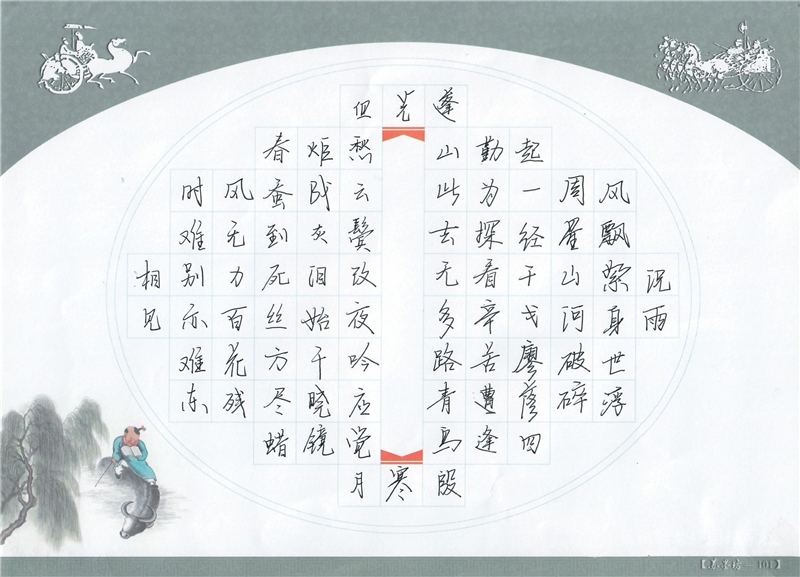 相见
时难别亦难东
风无力百花残
春蚕到死丝方尽蜡
炬成灰泪始干晓镜
但愁云鬓改夜吟应觉月
光寒
蓬山此去无多路青鸟殷
勤为探看辛苦遭逢
起一经干戈寥落四
周星山河破碎
风飘絮身世浮
沉雨
101